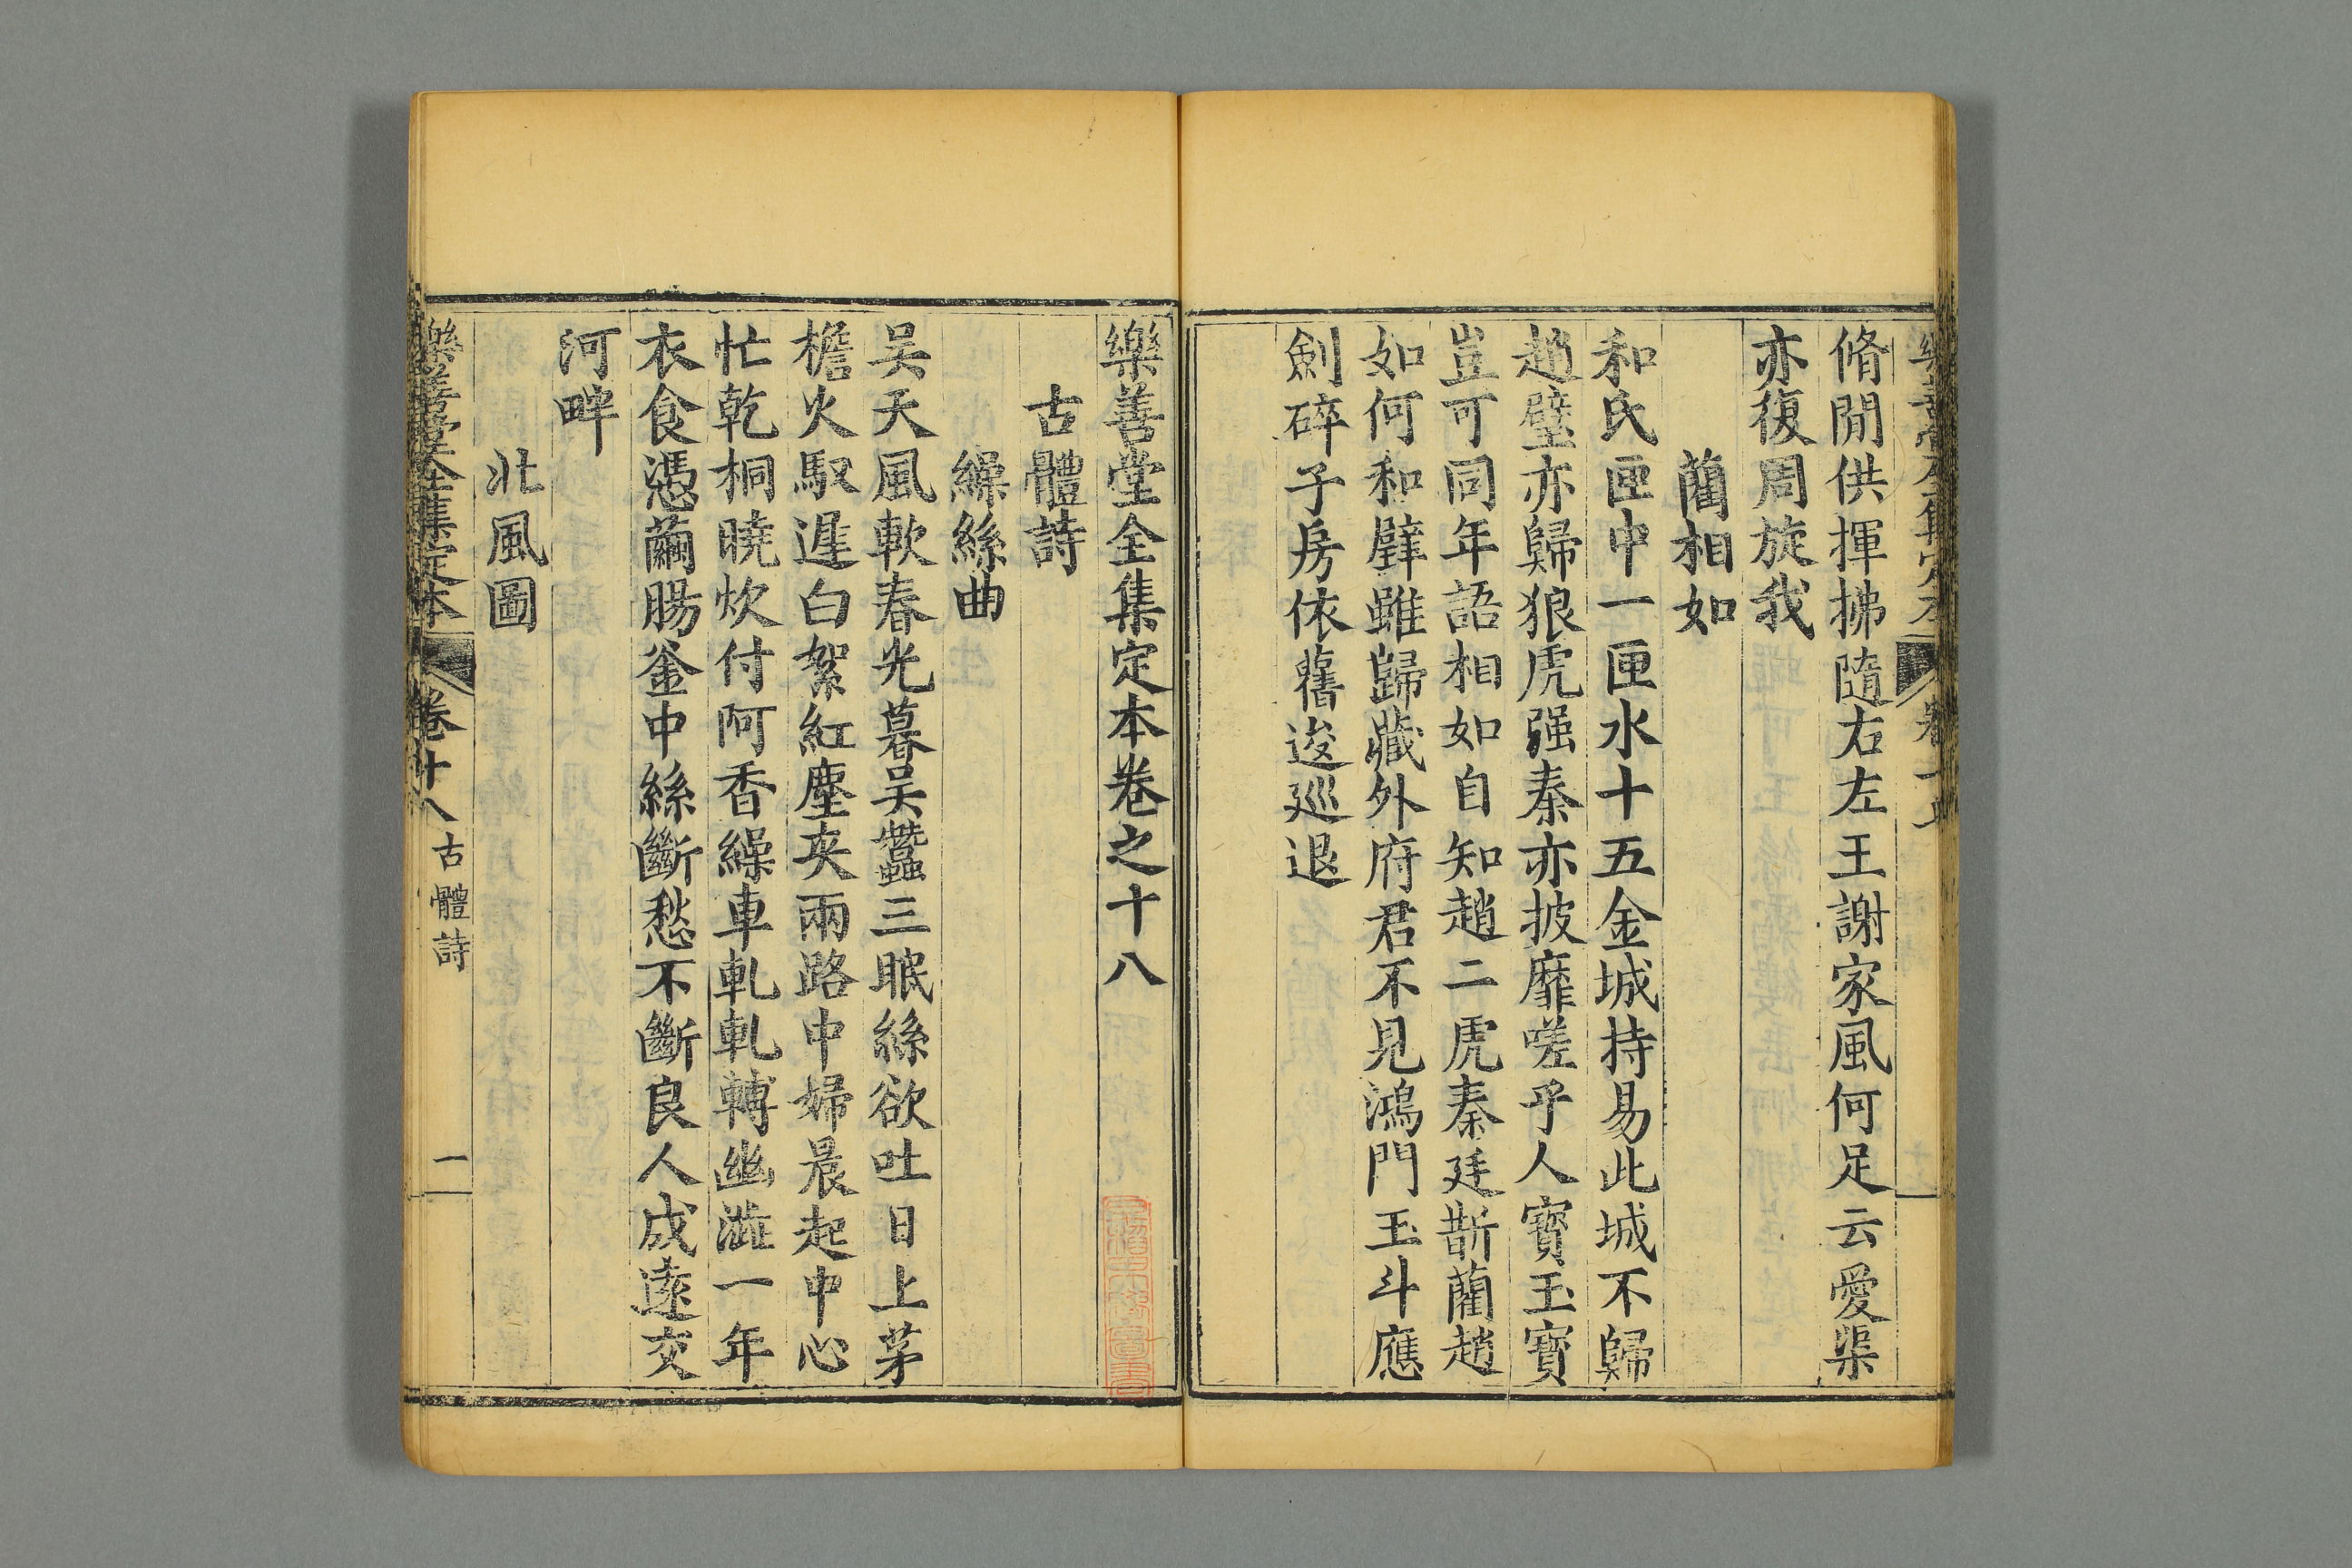 脩閒供揮拂隨右左王謝家風何足云愛渠
亦復周旋我
藺相如
和氏匣中一匣水十五金城持易此城不歸
趙璧亦歸狼虎强秦亦披靡嗟乎人寳玉寳
豈可同年語相如自知趙二虎秦廷斮藺趙
如何和璧雖歸藏外府君不見鴻門玉斗應
劍碎子房依舊逡廵退
樂善堂全集定本卷之十八
古體詩
繰絲曲
吴天風軟春光暮吴蠶三眠絲欲吐日上茅
檐火馭遲白絮紅塵夾兩路中婦晨起中心
忙乾桐曉炊付阿香繰車軋軋轉幽澁一年
衣食憑繭腸釜中絲斷愁不斷良人戍逺交
河畔
北風圖
樂善堂全集定本 卷十八 古體詩 一